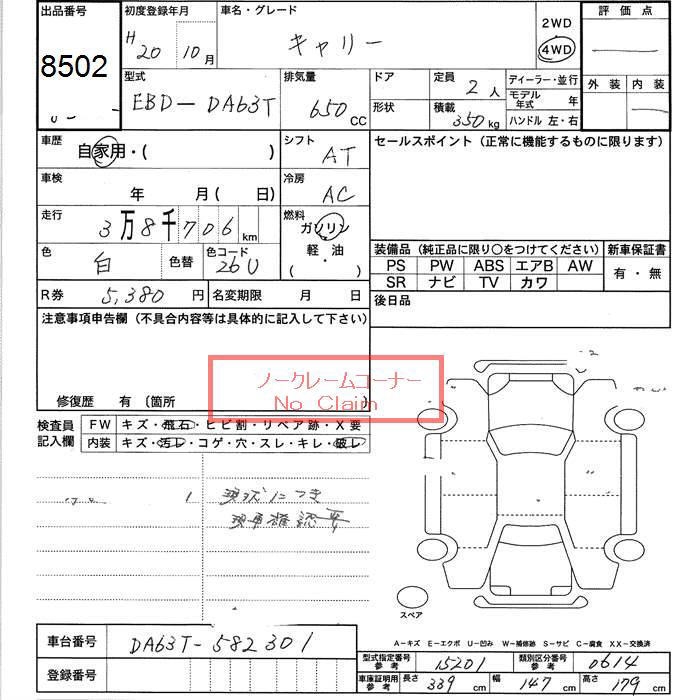 出品番号 初度登録年月 車名・グレード 2WD 評価点
8502 H20 10月 キャリー 4WD
型式 排気量 ドア 定員 2人 ディーラー・並行 外装 内装
EBD-DA63T 650cc 形状 積載 350kg モデル年式 年
ハンドル 左・右
車歴 自家用・( ) シフト AT セールスポイント（正常に機能するものに限ります）
車検 年 月(日) 冷房 AC
走行 3万8千706km 燃料 ガソリン
軽・油
( )
色 白 色替 色コード 26U 装備品（純正品に限り○をつけてください） 新車保証書
PS PW ABS エアB AW 有・無
SR ナビ TV カワ
R券 5,380円 名変期限 月 日 後日品
注意事項申告欄（不具合内容等は具体的に記入して下さい）
ノークレームコーナー
No Claim
修復歴 有〔箇所
検査員記入欄 FW キズ・飛石・ヒビ割・リペア跡・X要
内装 キズ・汚レ・コゲ・穴・スレ・キレ・破レ
現状につき
現車確認要
スペア
車台番号 DA63T-582301
A-キズ E-エクボ U-凹み W-補修跡 S-サビ C-腐食 XX-交換済
型式指定番号参考 15201 類別区分番号参考 0614
登録番号 車庫証明用参考 長さ 339cm 幅 147cm 高さ 179cm